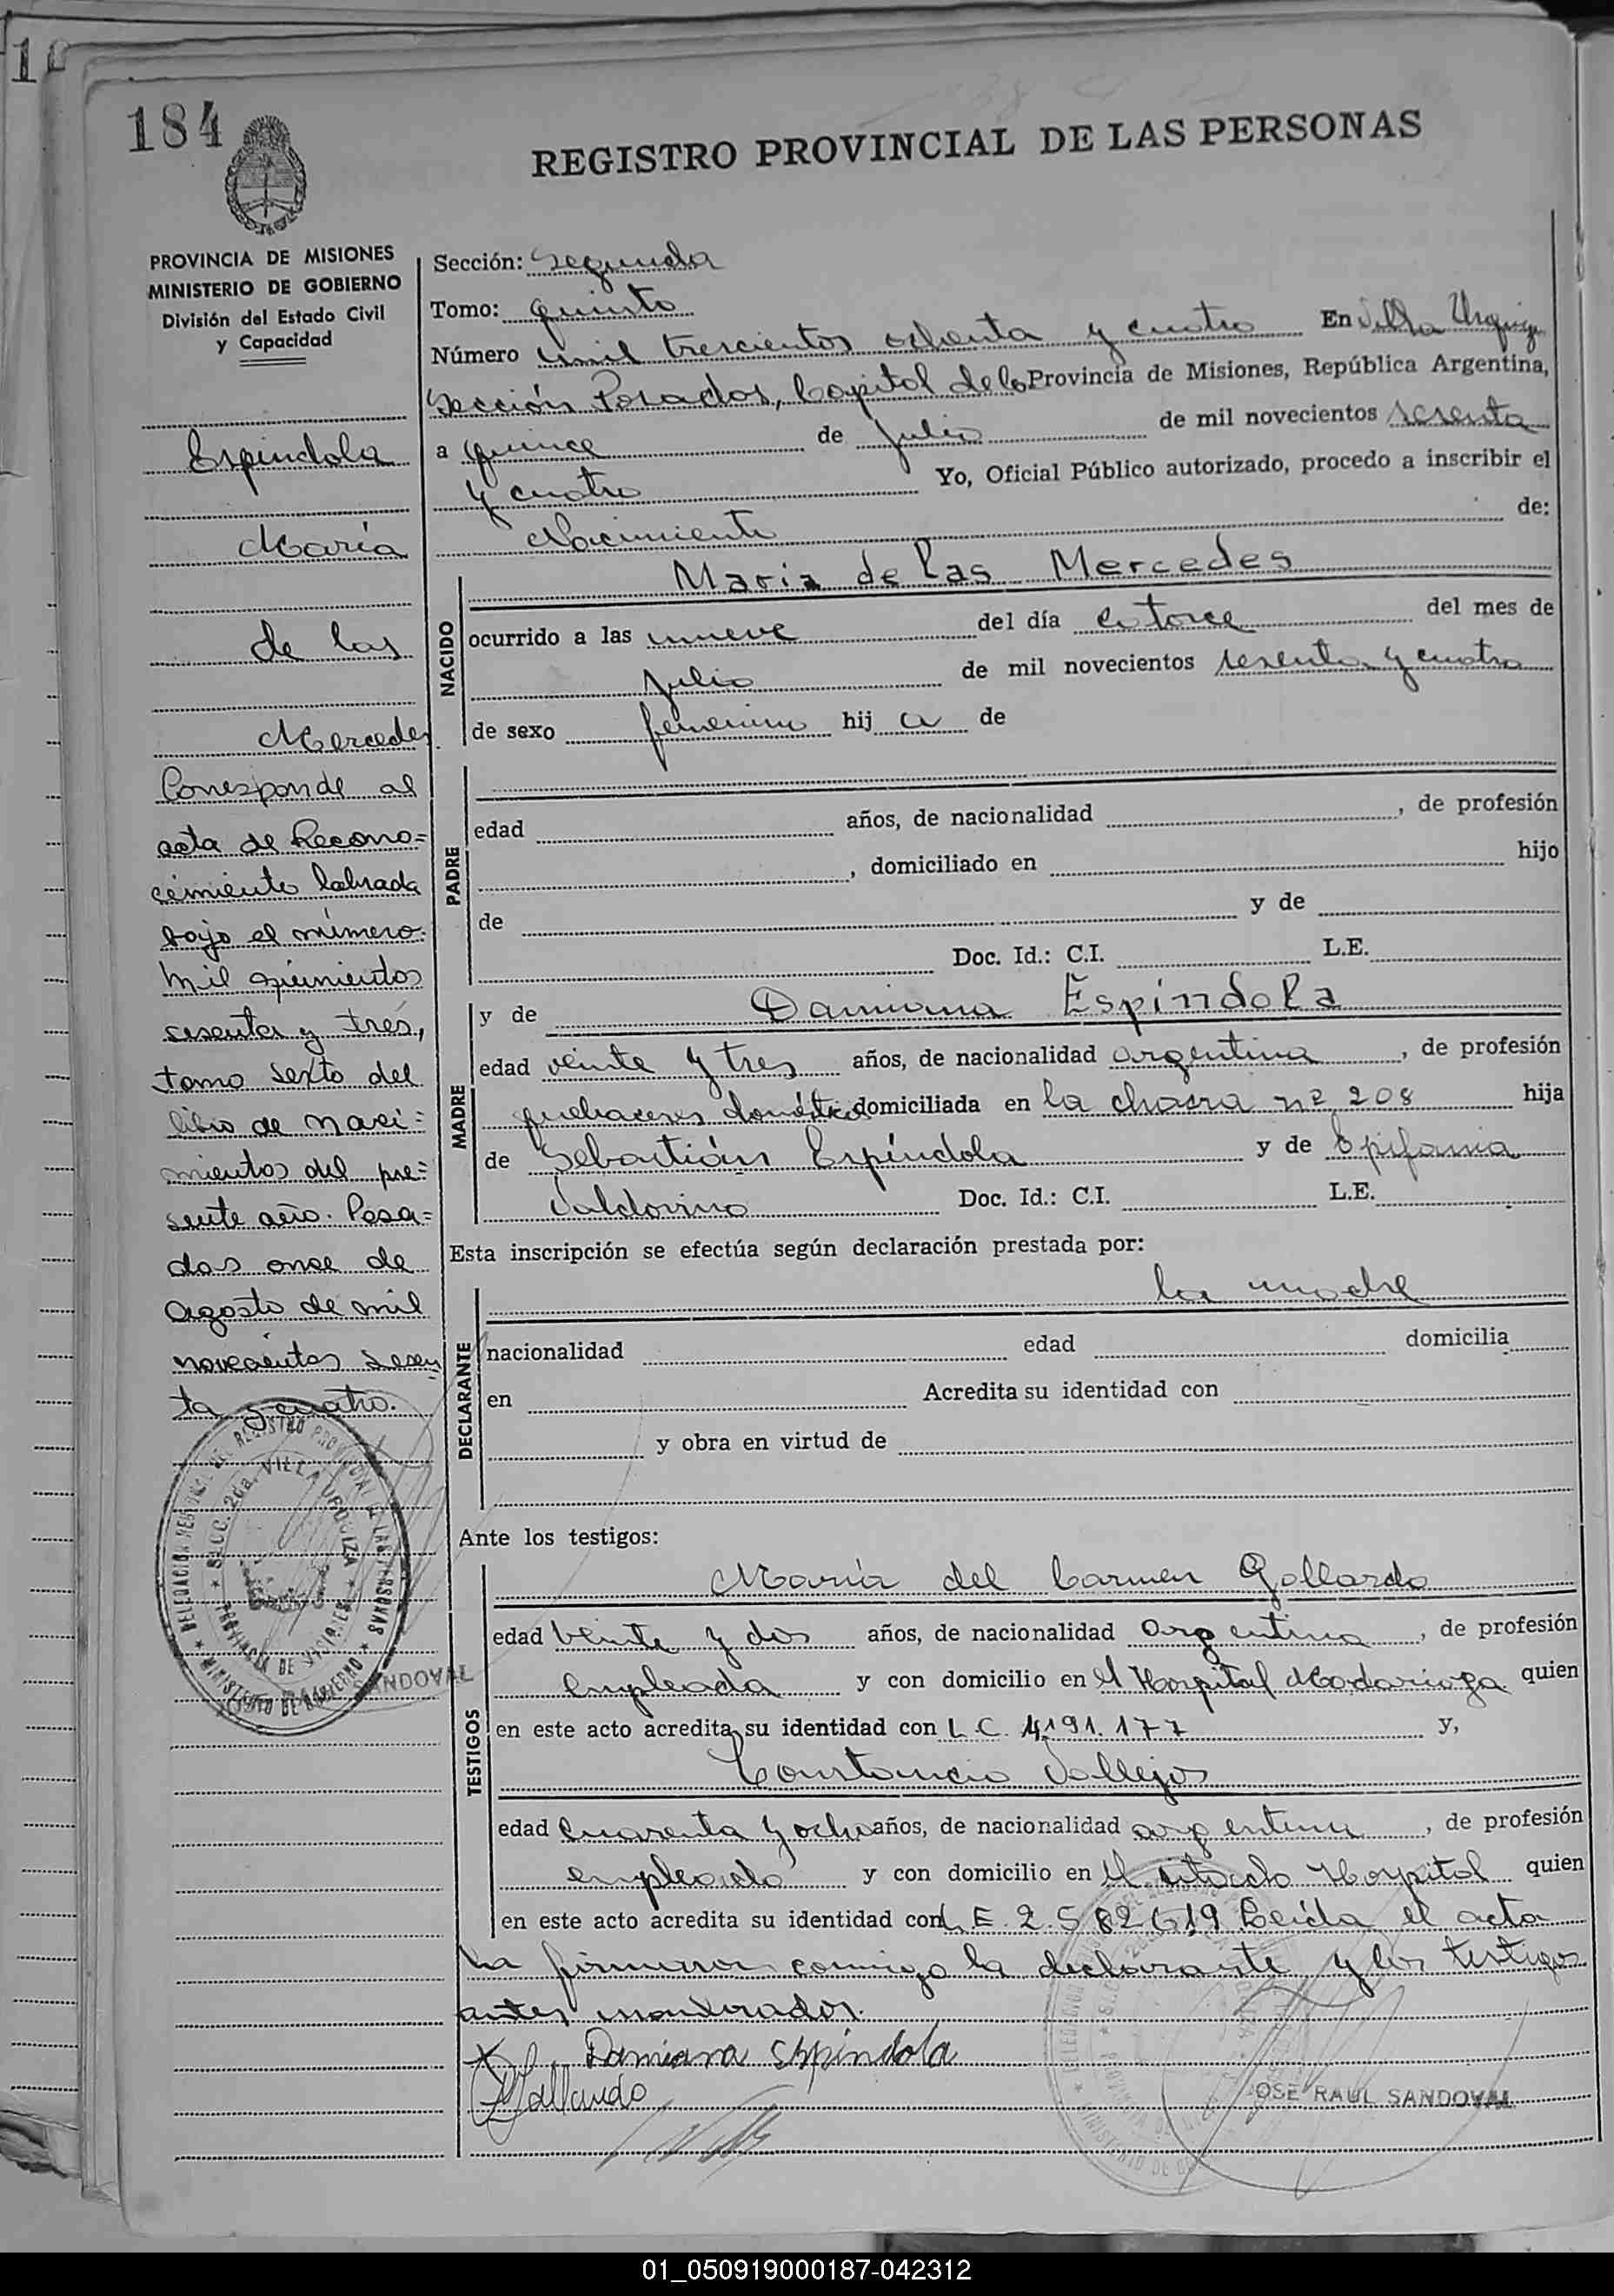 184
REGISTRO PROVINCIAL DE LAS PERSONAS
PROVINCIA DE MISIONES
MINISTERIO DE GOBIERNO
División del Estado Civil
y Capacidad
Espíndola
María
de las
Mercedes
Corresponde al
acta de Recono=
cimiento labrada
bajo el número
mil quinientos
sesenta y tres,
tomo sexto del
libro de naci=
mientos del pre=
sente año. Posa=
das once de
agosto de mil
novecientos sesen
ta y cuatro.
DELEGACIÓN REGIONAL DEL REGISTRO PROVINCIAL DE LAS PERSONAS
SECC. 2da. VILLA URQUIZA
PROVINCIA DE MISIONES
MINISTERIO DE GOBIERNO
SANDOVAL
Sección: Segunda
Tomo: quinto
Número mil trescientos ochenta y cuatro En Villa Urquiza
Sección Posadas, Capital de la Provincia de Misiones, República Argentina,
a quince de julio de mil novecientos sesenta
y cuatro Yo, Oficial Público autorizado, procedo a inscribir el
Nacimiento de:
NACIDO
Maria de las Mercedes
ocurrido a las nueve del día catorce del mes de
julio de mil novecientos sesenta y cuatro
de sexo femenino hij a de
PADRE
edad años, de nacionalidad , de profesión
, domiciliado en hijo
de y de
Doc. Id.: C.I. L.E.
MADRE
y de Damiana Espíndola
edad veinte y tres años, de nacionalidad argentina , de profesión
quehaceres domésticos domiciliada en la chacra nº 208 hija
de Sebastián Espíndola y de Epifania
Valdovino Doc. Id.: C.I. L.E.
Esta inscripción se efectúa según declaración prestada por:
DECLARANTE
la madre
nacionalidad edad domicilia
en Acredita su identidad con
y obra en virtud de
Ante los testigos:
TESTIGOS
María del Carmen Gallardo
edad veinte y dos años, de nacionalidad argentina , de profesión
empleada y con domicilio en el Hospital Madariaga quien
en este acto acredita su identidad con L.C. 4191.177 y,
Constancio Vallejos
edad cuarenta y ocho años, de nacionalidad argentina , de profesión
empleado y con domicilio en el citado Hospital quien
en este acto acredita su identidad con L.E. 2.582619 Leída el acta
la firman conmigo la declarante y los testigos
antes nombrados.
Damiana Espíndola
Gallardo
JOSE RAUL SANDOVAL
01_050919000187-042312